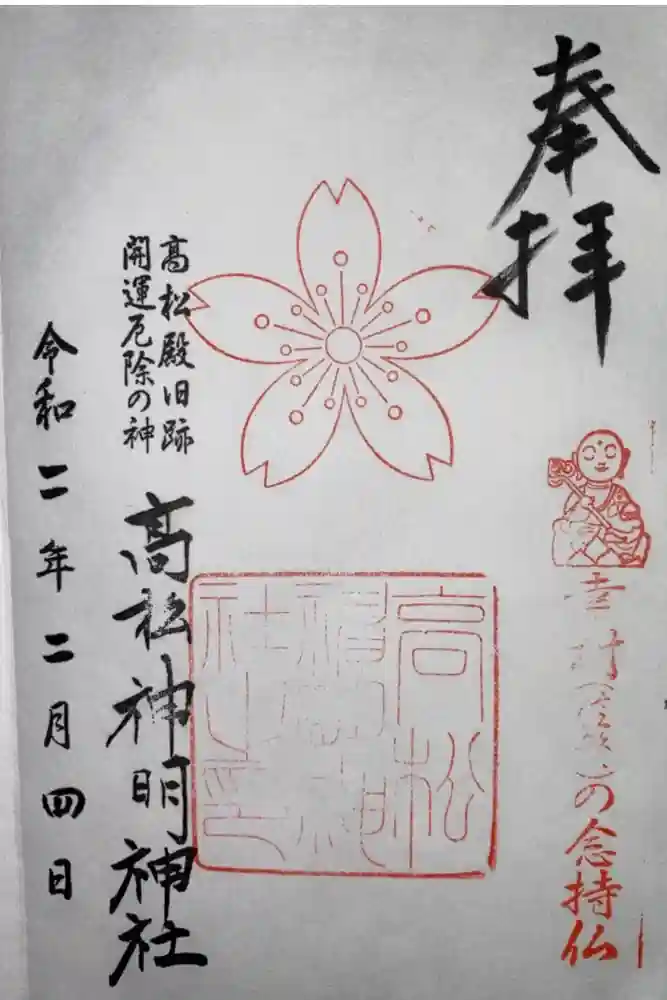 奉拝
幸村(真田)の念持仏
高松神明神社之印
高松殿旧跡
開運厄除の神
高松神明神社
令和二年二月四日